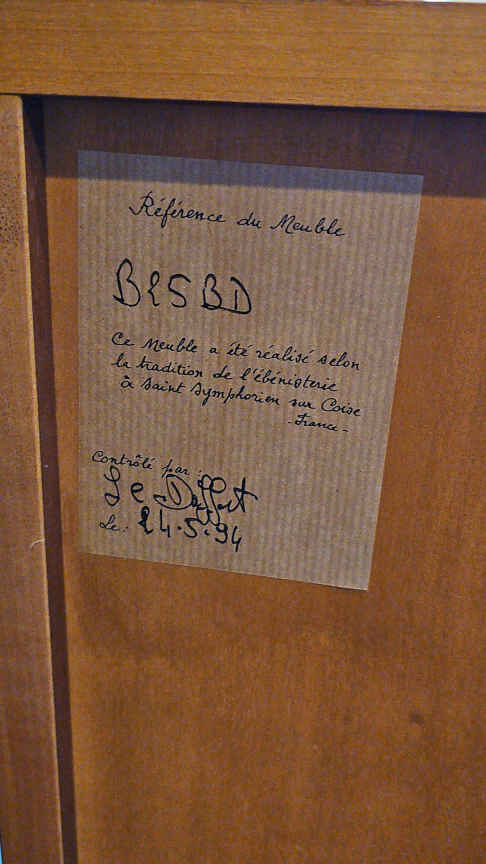 Référence du Meuble
B25BD
Ce Meuble a été réalisé selon
la tradition de l'ébénisterie
à Saint Symphorien sur Coise
-France-
Contrôlé par :
Le
Le: 24.5.94